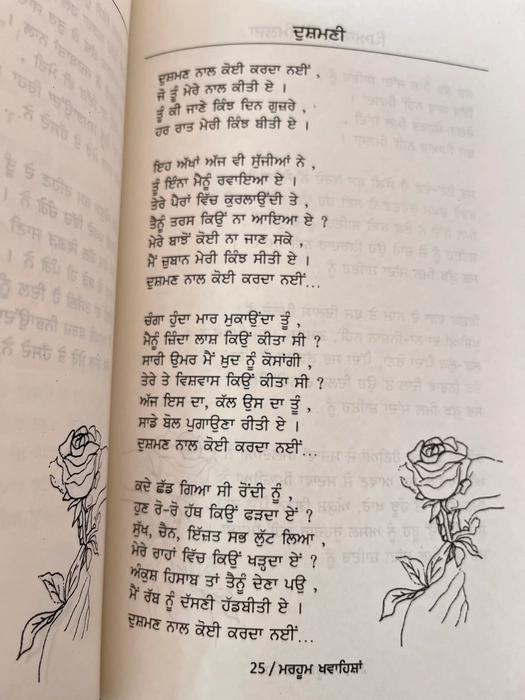 ਦੁਸ਼ਮਣੀ
ਦੁਸ਼ਮਣ ਨਾਲ ਕੋਈ ਕਰਦਾ ਨਈਂ ,
ਜੋ ਤੂੰ ਮੇਰੇ ਨਾਲ ਕੀਤੀ ਏ ।
ਤੂੰ ਕੀ ਜਾਣੇ ਕਿੰਝ ਦਿਨ ਗੁਜ਼ਰੇ ,
ਹਰ ਰਾਤ ਮੇਰੀ ਕਿੰਝ ਬੀਤੀ ਏ ।
ਇਹ ਅੱਖਾਂ ਅੱਜ ਵੀ ਸੁੱਜੀਆਂ ਨੇ ,
ਤੂੰ ਇੰਨਾ ਮੈਨੂੰ ਰਵਾਇਆ ਏ ।
ਤੇਰੇ ਪੈਰਾਂ ਵਿੱਚ ਕੁਰਲਾਉਂਦੀ ਤੇ ,
ਤੈਨੂੰ ਤਰਸ ਕਿਉਂ ਨਾ ਆਇਆ ਏ ?
ਮੇਰੇ ਬਾਝੋਂ ਕੋਈ ਨਾ ਜਾਣ ਸਕੇ ,
ਮੈਂ ਜ਼ੁਬਾਨ ਮੇਰੀ ਕਿੰਝ ਸੀਤੀ ਏ ।
ਦੁਸ਼ਮਣ ਨਾਲ ਕੋਈ ਕਰਦਾ ਨਈਂ...
ਚੰਗਾ ਹੁੰਦਾ ਮਾਰ ਮੁਕਾਉਂਦਾ ਤੂੰ ,
ਮੈਨੂੰ ਜ਼ਿੰਦਾ ਲਾਸ਼ ਕਿਉਂ ਕੀਤਾ ਸੀ ?
ਸਾਰੀ ਉਮਰ ਮੈਂ ਖ਼ੁਦ ਨੂੰ ਕੋਸਾਂਗੀ ,
ਤੇਰੇ ਤੇ ਵਿਸ਼ਵਾਸ ਕਿਉਂ ਕੀਤਾ ਸੀ ?
ਅੱਜ ਇਸ ਦਾ, ਕੱਲ ਉਸ ਦਾ ਤੂੰ ,
ਸਾਡੇ ਬੋਲ ਪੁਗਾਉਣਾ ਰੀਤੀ ਏ ।
ਦੁਸ਼ਮਣ ਨਾਲ ਕੋਈ ਕਰਦਾ ਨਈਂ...
ਕਦੇ ਛੱਡ ਗਿਆ ਸੀ ਰੋਂਦੀ ਨੂੰ ,
ਹੁਣ ਰੋ-ਰੋ ਹੱਥ ਕਿਉਂ ਫੜਦਾ ਏਂ ?
ਸੁੱਖ, ਚੈਨ, ਇੱਜ਼ਤ ਸਭ ਲੁੱਟ ਲਿਆ ,
ਮੇਰੇ ਰਾਹਾਂ ਵਿੱਚ ਕਿਉਂ ਖੜ੍ਹਦਾ ਏਂ ?
ਅੰਕੁਸ਼ ਹਿਸਾਬ ਤਾਂ ਤੈਨੂੰ ਦੇਣਾ ਪਊ ,
ਮੈਂ ਰੱਬ ਨੂੰ ਦੱਸਣੀ ਹੱਡਬੀਤੀ ਏ ।
ਦੁਸ਼ਮਣ ਨਾਲ ਕੋਈ ਕਰਦਾ ਨਈਂ...
25 / ਮਰਹੂਮ ਖਵਾਹਿਸ਼ਾਂ